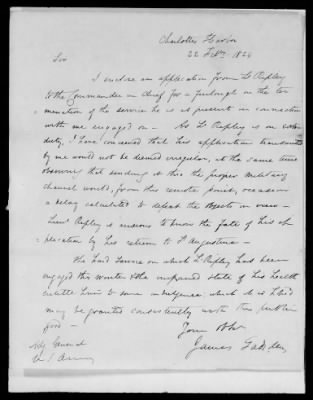 Charlotte Harbor
22 Feby 1824
Sir
I enclose an application from Lt Ripley
to the Commander in Chief for a furlough on the ter-
mination of the service he is at present in connection
with me engaged on — As Lt Ripley is on
duty, I have conceived that his application transmitted
by me would not be deemed irregular, at the same time
observing that sending it thro the proper military
channel would, from this remote point, occasion
a delay calculated to defeat the objects in view —
Lieut Ripley is anxious to know the fate of his ap-
plication by his return to St Augustine —
The hard service on which Lt Ripley has been
engaged this winter & the impaired state of his health
entitle him to some indulgence which it is
may be granted consistently with the public
good —
Your Obt
James Gadsden
Adj General
U S Army